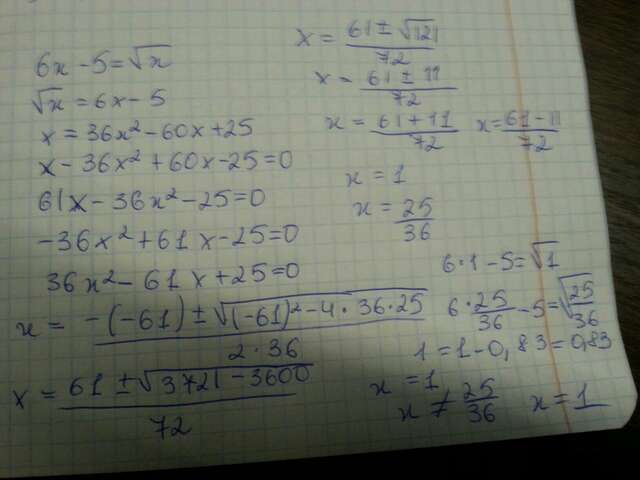 6x - 5 = √x
√x = 6x - 5
x = 36x² - 60x + 25
x - 36x² + 60x - 25 = 0
61x - 36x² - 25 = 0
-36x² + 61x - 25 = 0
36x² - 61x + 25 = 0
x = (-(-61) ± √((-61)² - 4 · 36 · 25)) / (2 · 36)
x = (61 ± √(3721 - 3600)) / 72
x = (61 ± √121) / 72
x = (61 ± 11) / 72
x = (61 + 11) / 72 x = (61 - 11) / 72
x = 1
x = 25/36
6 · 1 - 5 = √1
6 · 25/36 - 5 = √(25/36)
1 = 1 - 0,83 = 0,83
x = 1
x ≠ 25/36 x = 1